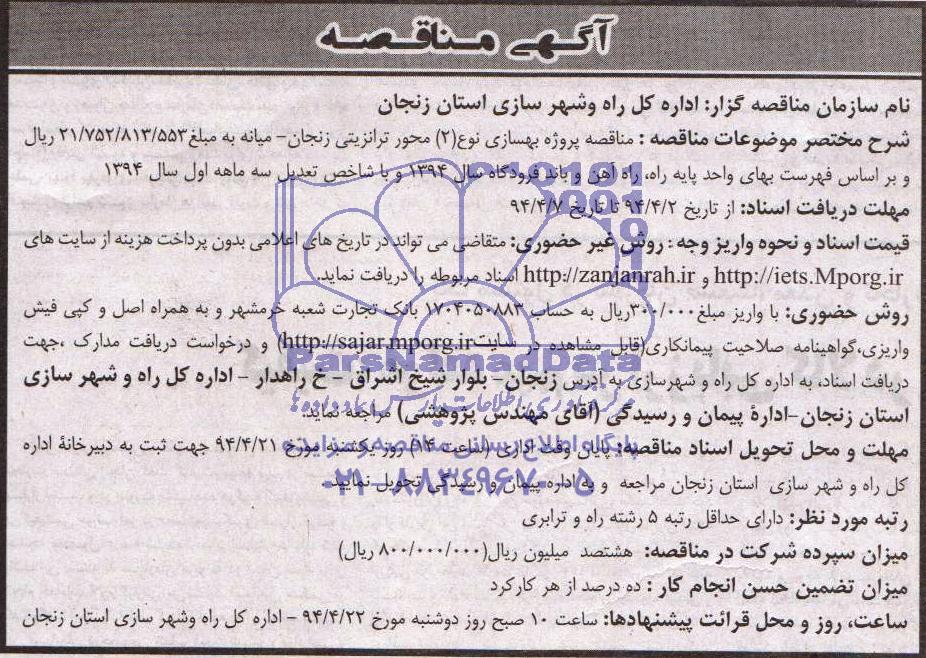 آگهی مناقصه
نام سازمان مناقصه گزار: اداره کل راه وشهر سازی استان زنجان
شرح مختصر موضوعات مناقصه : مناقصه پروژه بهسازی نوع(۲) محور ترانزیتی زنجان- میانه به مبلغ۲۱/۷۵۲/۸۱۳/۵۵۳ ریال
و بر اساس فهرست بهای واحد پایه راه، راه آهن و باند فرودگاه سال ۱۳۹۴ و با شاخص تعدیل سه ماهه اول سال ۱۳۹۴
مهلت دریافت اسناد: از تاریخ ۹۴/۴/۲ تا تاریخ ۹۴/۴/۷
قیمت اسناد و نحوه واریز وجه : روش غیر حضوری: متقاضی می تواند در تاریخ های اعلامی بدون پرداخت هزینه از سایت های
http://iets.Mporg.ir و http://zanjanrah.ir اسناد مربوطه را دریافت نماید.
روش حضوری: با واریز مبلغ۳۰۰/۰۰۰ریال به حساب ۱۷۰۴۰۵۰۸۸۳ بانک تجارت شعبه خرمشهر و به همراه اصل و کپی فیش
واریزی،گواهینامه صلاحیت پیمانکاری(قابل مشاهده در سایتhttp://sajar.mporg.ir) و درخواست دریافت مدارک ،جهت
دریافت اسناد، به اداره کل راه و شهرسازی به آدرس زنجان- بلوار شیخ اشراق - خ راهدار - اداره کل راه و شهر سازی
استان زنجان-ادارۀ پیمان و رسیدگی (آقای مهندس پژوهشی) مراجعه نماید.
مهلت و محل تحویل اسناد مناقصه: پایان وقت اداری (ساعت ۱۴) روز یکشنبه مورخ ۹۴/۴/۲۱ جهت ثبت به دبیرخانۀ اداره
کل راه و شهر سازی استان زنجان مراجعه و به اداره پیمان و رسیدگی تحویل نمایند.
رتبه مورد نظر: دارای حداقل رتبه ۵ رشته راه و ترابری
میزان سپرده شرکت در مناقصه: هشتصد میلیون ریال(۸۰۰/۰۰۰/۰۰۰ ریال)
میزان تضمین حسن انجام کار : ده درصد از هر کارکرد
ساعت، روز و محل قرائت پیشنهادها: ساعت ۱۰ صبح روز دوشنبه مورخ ۹۴/۴/۲۲ - اداره کل راه وشهر سازی استان زنجان
ParsNamadData
پایگاه اطلاع رسانی مناقصه و مزایده
۰۲۱-۸۸۳۴۹۶۷۰-۵